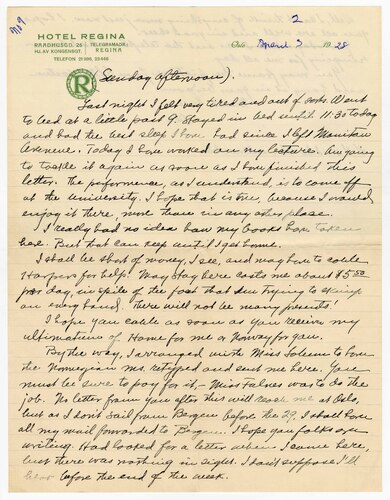 2
HOTEL REGINA
RAADHUSGD. 25 TELEGRAMADR.:
HJ.AV KONGENSGT. REGINA
TELEFON 21 996, 23 468
R
Oslo 19 28
(Sunday afternoon).
Last night I felt very tired and out of sorts. Went
to bed at a little past 9. Stayed in bed until 11:30 today
and had the best sleep I have had since I left Manitou
Avenue. Today I have worked on my lecture. Am going
to tackle it again as soon as I have finished this
letter. The performance, as I understand, is to come off
at the university. I hope that is true, because I would
enjoy it there, more than in any other place.
I really had no idea how my books have taken
hose. But that can keep until I get home.
I shall be short of money, I see, and may have to cable
Harpers for help. My stay here costs me about $5.00
per day, in spite of the fact that I'm trying to skimp
on every hand. There will not be many presents!
I hope you cable as soon as you receive my
ultimatum of Home for me or Norway for you.
By the way, I arranged with Miss Solem to have
the Norwegian ms retyped and sent me here. You
must be sure to pay for it, – Miss Falnes was to do the
job. No letter from you after this will reach me at Oslo,
but as I don't sail from Bergen before the 29, I shall have
all my mail forwarded to Bergen. I hope you folks are
writing. Had looked for a letter when I came here,
but there was nothing in sight. I don't suppose I'll
hear before the end of the week.